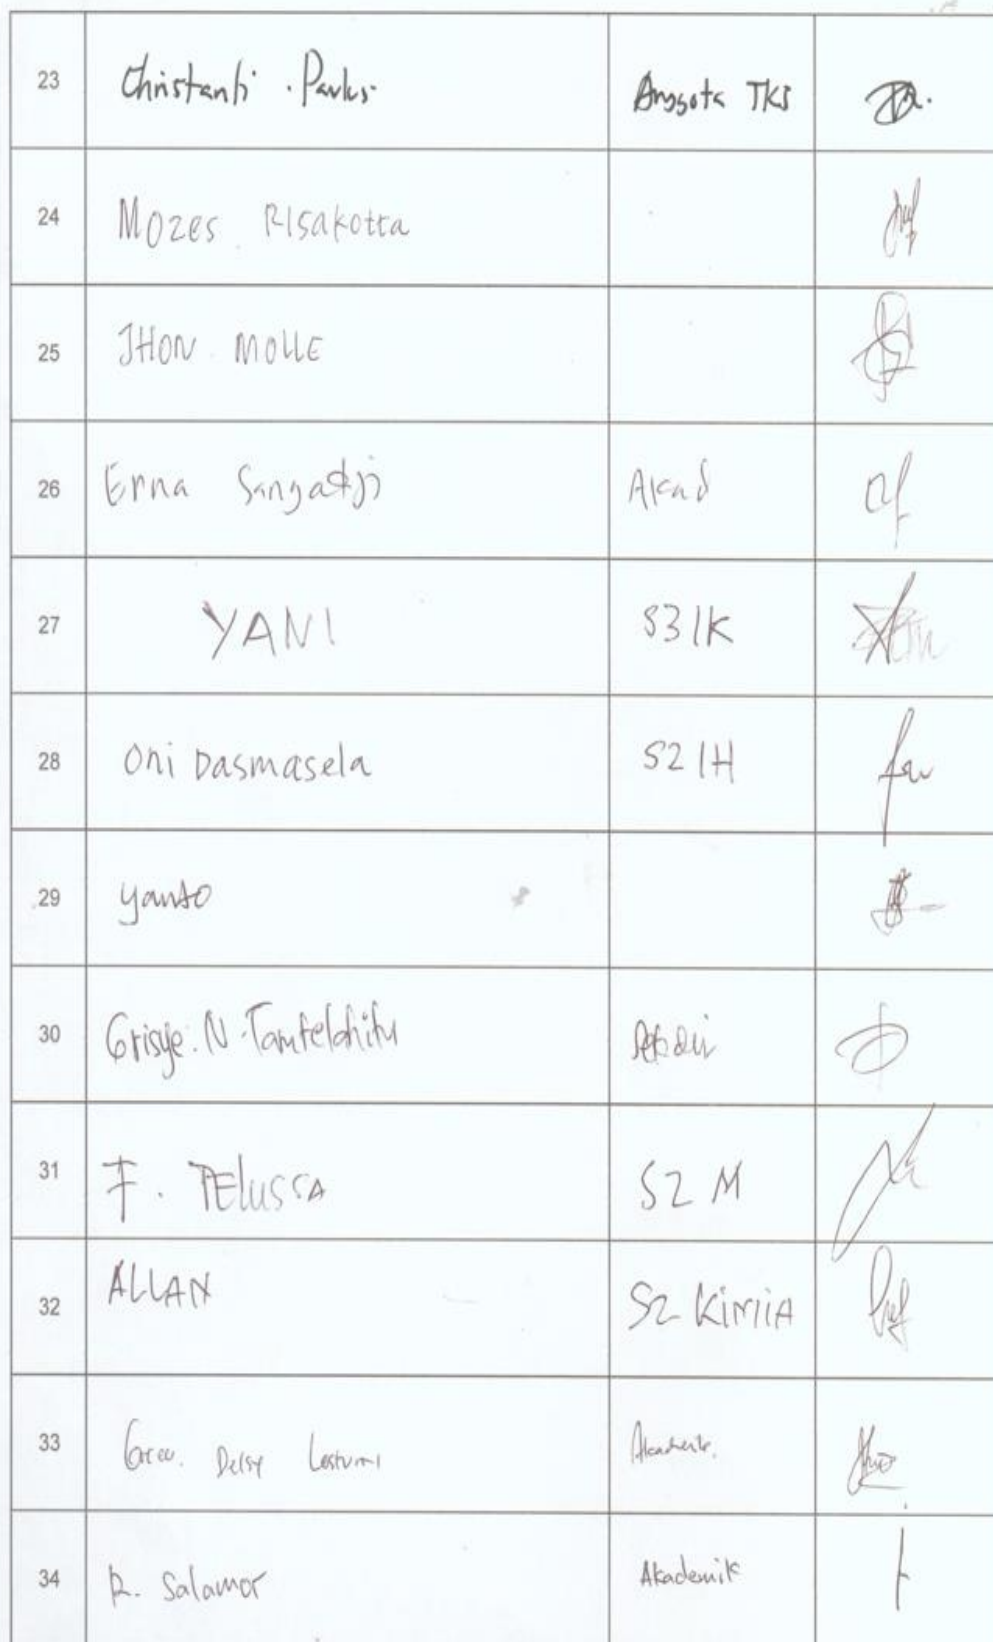 23 Christanti . Paulus Anggota TKS
24 MOZes RISAKOTTA
25 JHON MOLLE
26 Erna Sangadji Akad
27 YANI S3 IK
28 Oni Dasmasela S2 IH
29 yanto
30 Grisye. N. Tamtelahitu
31 F. PElUSSA S2 M
32 ALLAN S2 KiMiA
33 Delsy Akademik.
34 R. Salamor Akademik